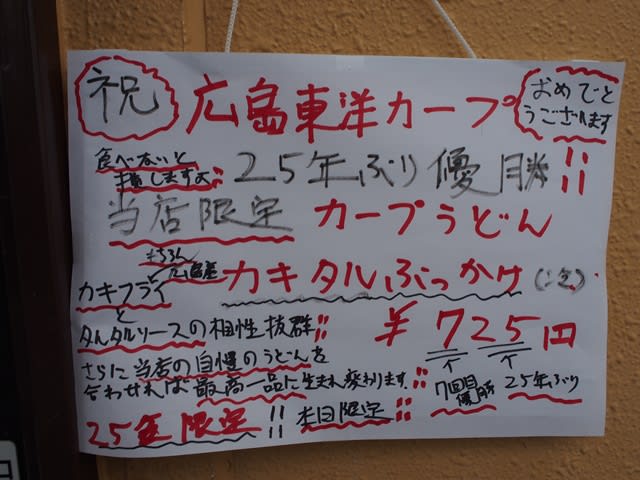 祝
広島東洋カープ
おめでと
うございます
食べないと
損しますよ!!
25年ぶり優勝!!
当店限定 カープうどん
もちろん
広島産
カキタルぶっかけ
カキフライ
と
タルタルソースの相性抜群!!
さらに当店の自慢のうどんを
合わせれば最高一品に生まれ変わります!!
¥725円
7回目
優勝
25年ぶり
25年限定!! 本日限定!!